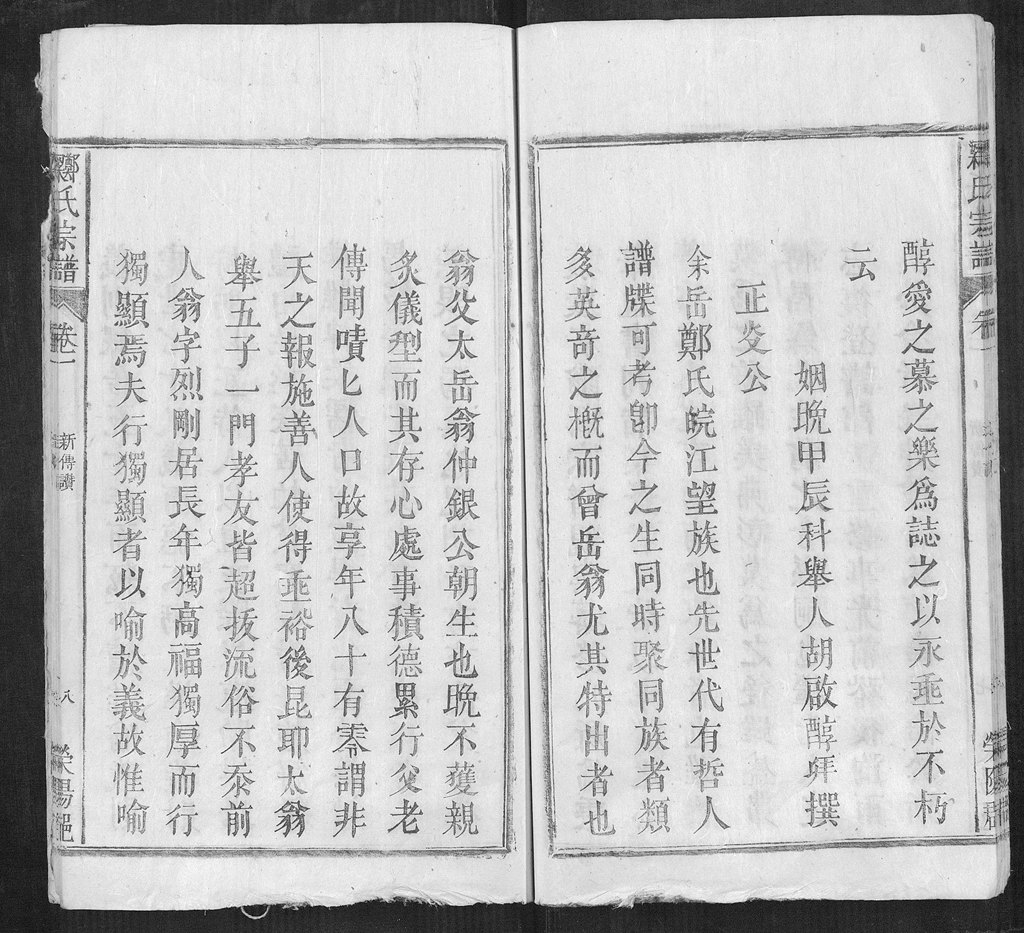 醇愛之慕之樂為誌之以永垂於不朽
云
姻晚甲辰科舉人胡啟醇拜撰
正文公
余岳鄭氏皖江望族也先世代有哲人
譜牒可考卽今之生同時聚同族者類
多英奇之概而曾岳翁尤其特出者也
翁父太岳翁仲銀公朝生也晚不獲親
炙儀型而其存心處事積德累行父老
傳聞嘖匕人口故享年八十有零謂非
天之報施善人使得垂裕後昆耶太翁
舉五子一門孝友皆超拔流俗不忝前
人翁字烈剛居長年獨高福獨厚而行
獨顯焉夫行獨顯者以喻於義故惟喻
鄭氏宗譜
卷一
新傳讚
八
滎陽